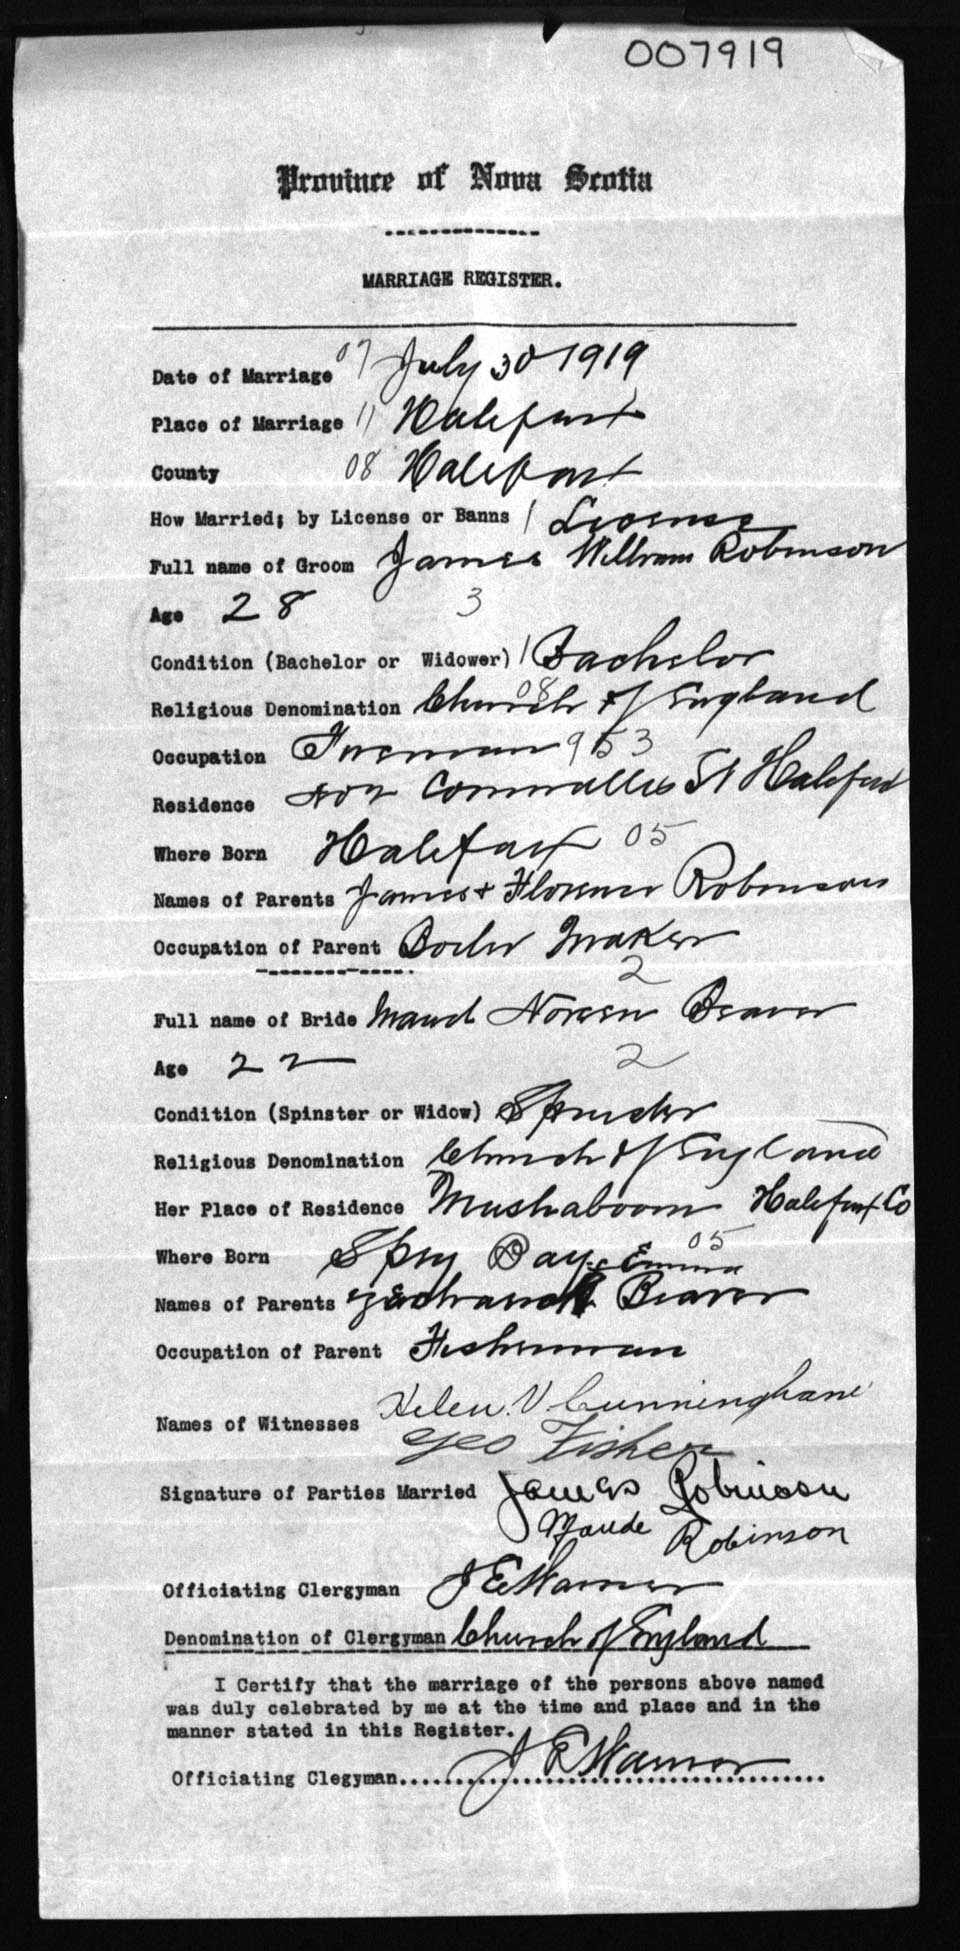 007919
Province of Nova Scotia
MARRIAGE REGISTER.
Date of Marriage 07 July 30 1919
Place of Marriage 11 Halifax
County 08 Halifax
How Married; by License or Banns 1 License
Full name of Groom James William Robinson
Age 28 3
Condition (Bachelor or Widower) 1 Bachelor
Religious Denomination Church of England 08
Occupation Fireman 953
Residence Cornwallis St Halifax
Where Born Halifax 05
Names of Parents James + Florence Robinson
Occupation of Parent Boiler Maker
2
Full name of Bride Maud Noreen Beaver
Age 22 2
Condition (Spinster or Widow) Spinster
Religious Denomination Church of England
Her Place of Residence Mushaboom Halifax Co
Where Born Spry Bay 05
Names of Parents & Emma Beaver
Occupation of Parent Fisherman
Names of Witnesses Helen V. Cunningham
Geo Fisher
Signature of Parties Married James Robinson
Maude Robinson
Officiating Clergyman J E Warner
Denomination of Clergyman Church of England
I Certify that the marriage of the persons above named
was duly celebrated by me at the time and place and in the
manner stated in this Register.
Officiating Clegyman.... J E Warner